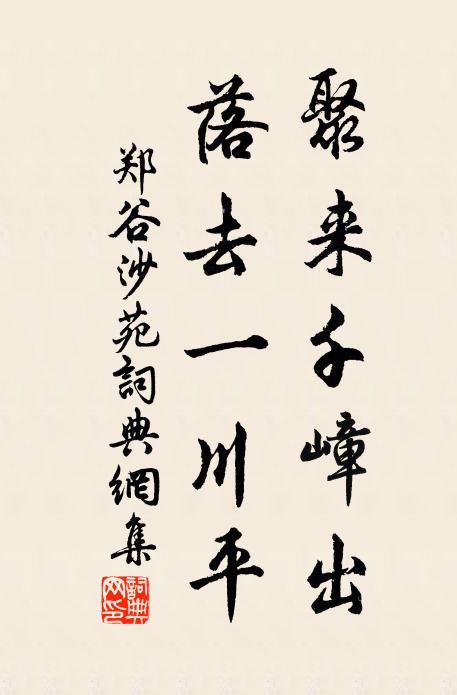 聚来千嶂出
落去一川平
郑谷沙苑詞典網集
詞典网印